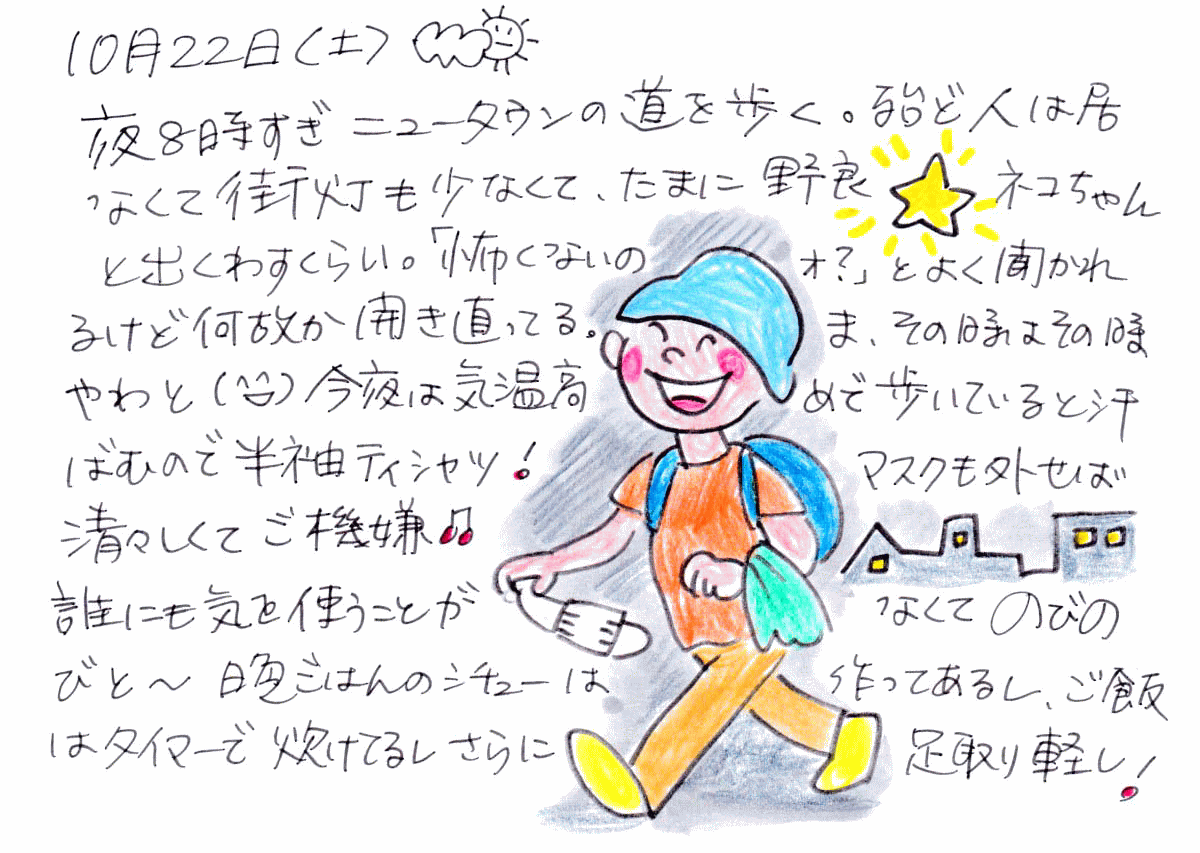 10月22日(土)
夜8時すぎニュータウンの道を歩く。殆ど人は居
なくて街灯も少なくて、たまに野良ネコちゃん
と出くわすくらい。「怖くないのォ?」とよく聞かれ
るけど何故か開き直ってる。ま、その時はその時
やわと(^^)今夜は気温高めで歩いていると汗
ばむので半袖ティシャツ!マスクも外せば
清々しくてご機嫌♫
誰にも気を使うことがなくてのびの
びと〜晩ごはんのシチューは作ってあるし、ご飯
はタイマーで炊けてるしさらに足取り軽し!